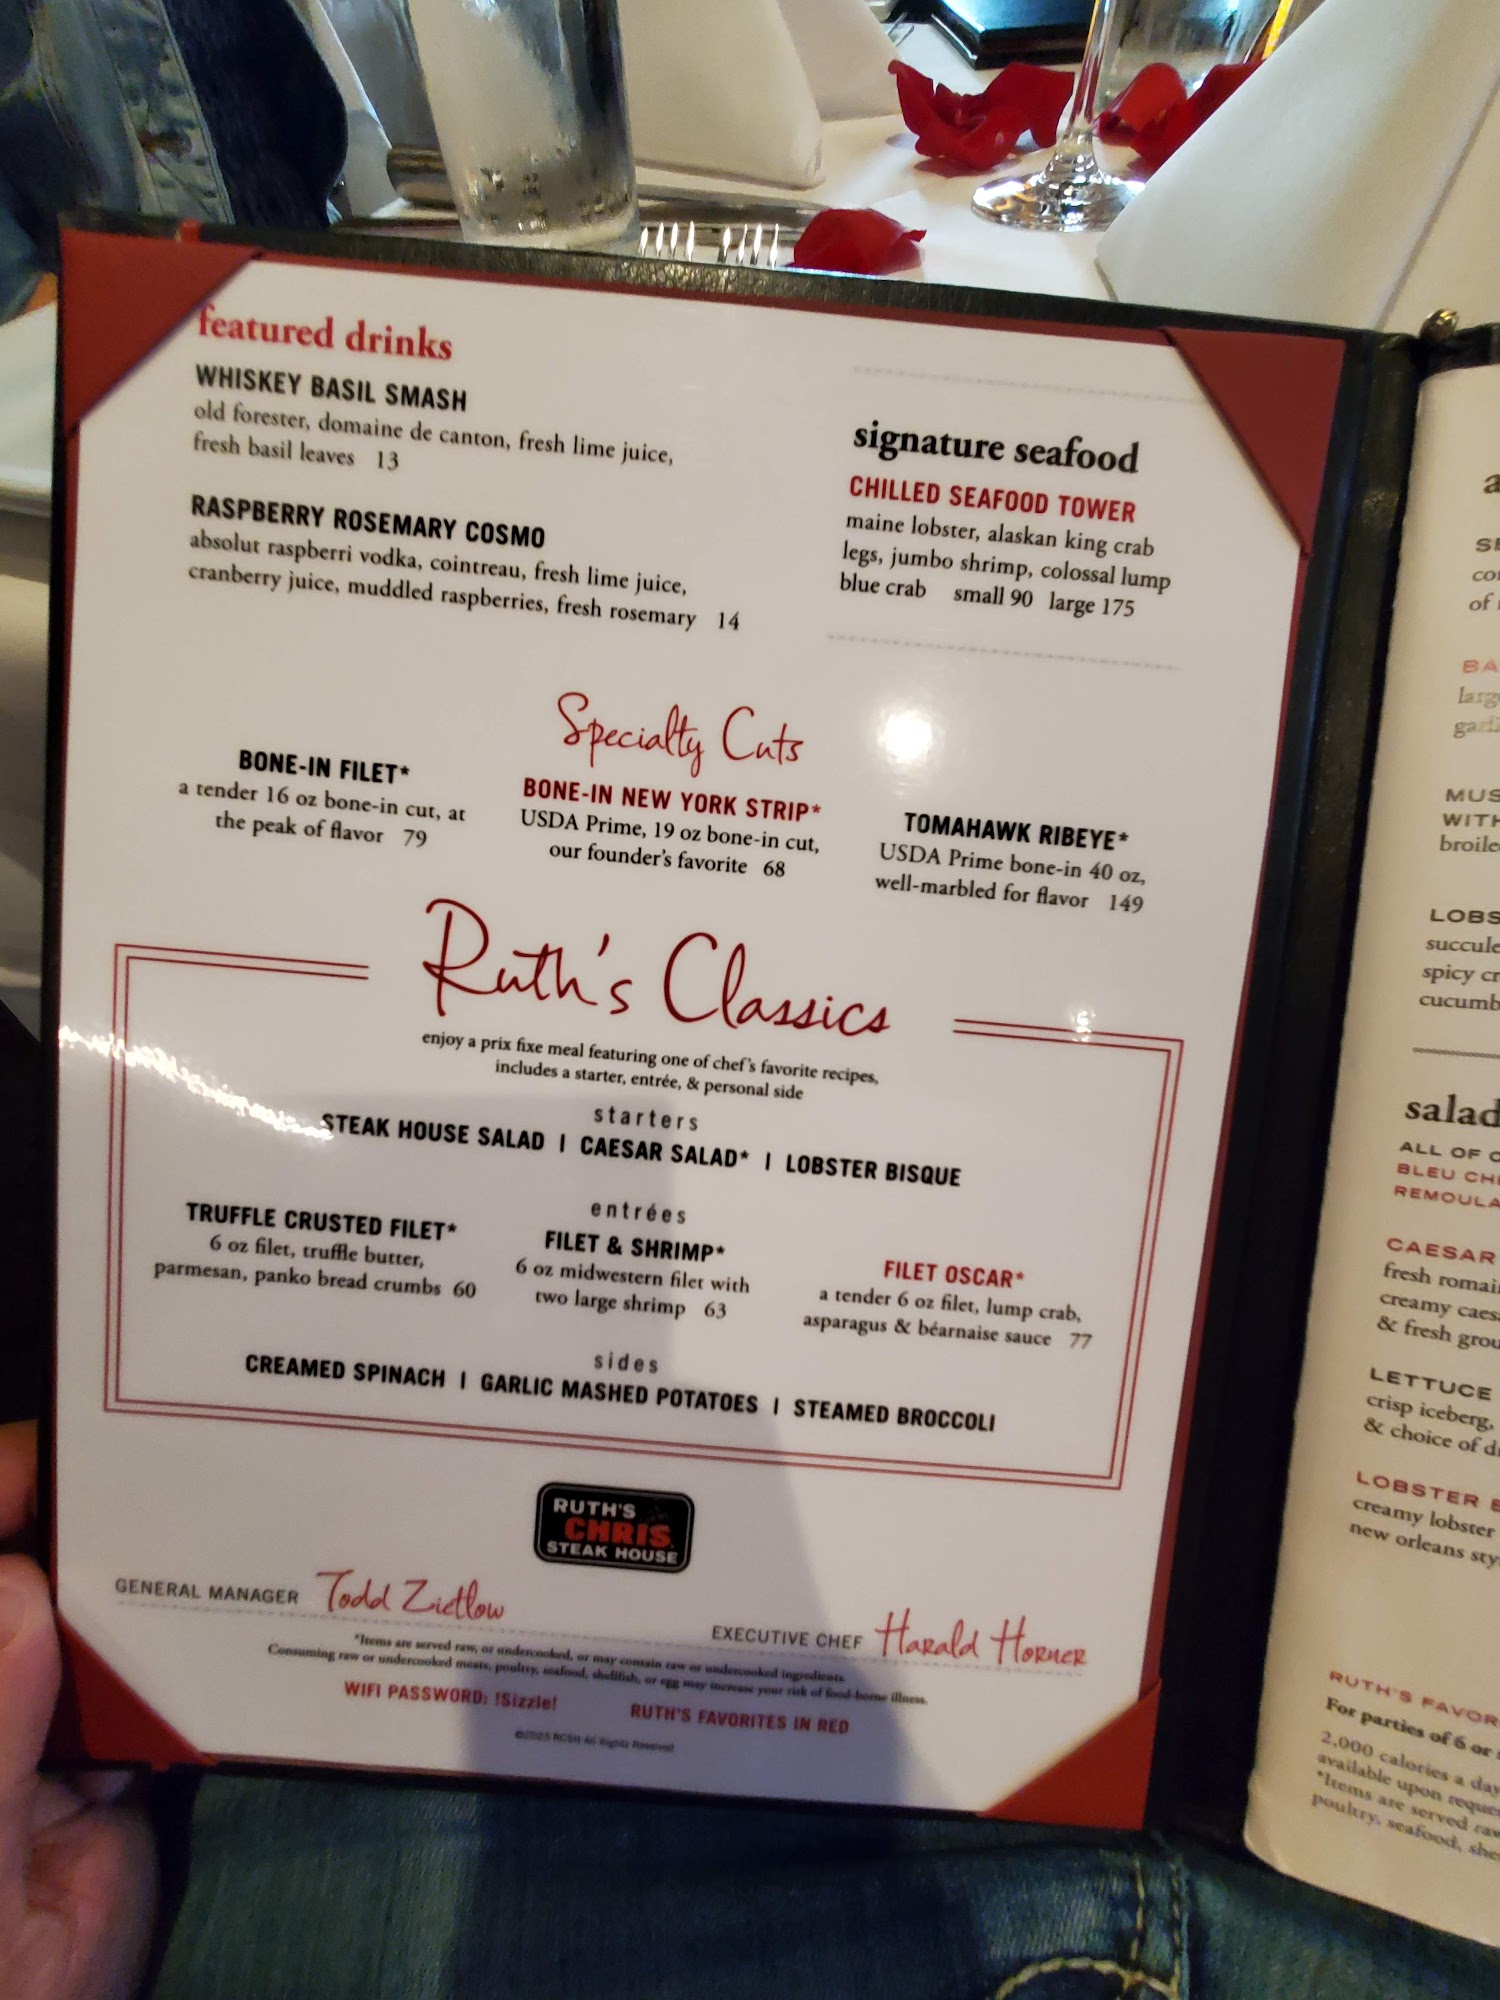 featured drinks
WHISKEY BASIL SMASH
old forester, domaine de canton, fresh lime juice,
fresh basil leaves 13
RASPBERRY ROSEMARY COSMO
absolut raspberri vodka, cointreau, fresh lime juice,
cranberry juice, muddled raspberries, fresh rosemary 14
signature seafood
CHILLED SEAFOOD TOWER
maine lobster, alaskan king crab
legs, jumbo shrimp, colossal lump
blue crab small 90 large 175
Specialty Cuts
BONE-IN FILET*
a tender 16 oz bone-in cut, at
the peak of flavor 79
BONE-IN NEW YORK STRIP*
USDA Prime, 19 oz bone-in cut,
our founder's favorite 68
TOMAHAWK RIBEYE*
USDA Prime bone-in 40 oz,
well-marbled for flavor 149
Ruth's Classics
enjoy a prix fixe meal featuring one of chef's favorite recipes,
includes a starter, entrée, & personal side
starters
STEAK HOUSE SALAD | CAESAR SALAD* | LOBSTER BISQUE
entrées
TRUFFLE CRUSTED FILET*
6 oz filet, truffle butter,
parmesan, panko bread crumbs 60
FILET & SHRIMP*
6 oz midwestern filet with
two large shrimp 63
FILET OSCAR*
a tender 6 oz filet, lump crab,
asparagus & béarnaise sauce 77
sides
CREAMED SPINACH | GARLIC MASHED POTATOES | STEAMED BROCCOLI
RUTH'S
CHRIS
STEAK HOUSE
GENERAL MANAGER Todd Zietlow
EXECUTIVE CHEF Harald Horner
*Items are served raw, or undercooked, or may contain raw or undercooked ingredients.
Consuming raw or undercooked meats, poultry, seafood, shellfish, or egg may increase your risk of food-borne illness.
WIFI PASSWORD: !Sizzle!
RUTH'S FAVORITES IN RED
©2023 RCSH All Rights Reserved
of
BA
garli
MUS
WITH
broile
LOBS
succule
spicy cr
cucumb
salad
ALL OF
BLEU CH
REMOULA
CAESAR
fresh romai
creamy caes
& fresh grou
LETTUCE
crisp iceberg,
& choice of d
LOBSTER
creamy lobster
new orleans sty
RUTH'S FAVOR
For parties of 6 or
2,000 calories a day
available upon reques
*Items are served raw
poultry, seafood, she